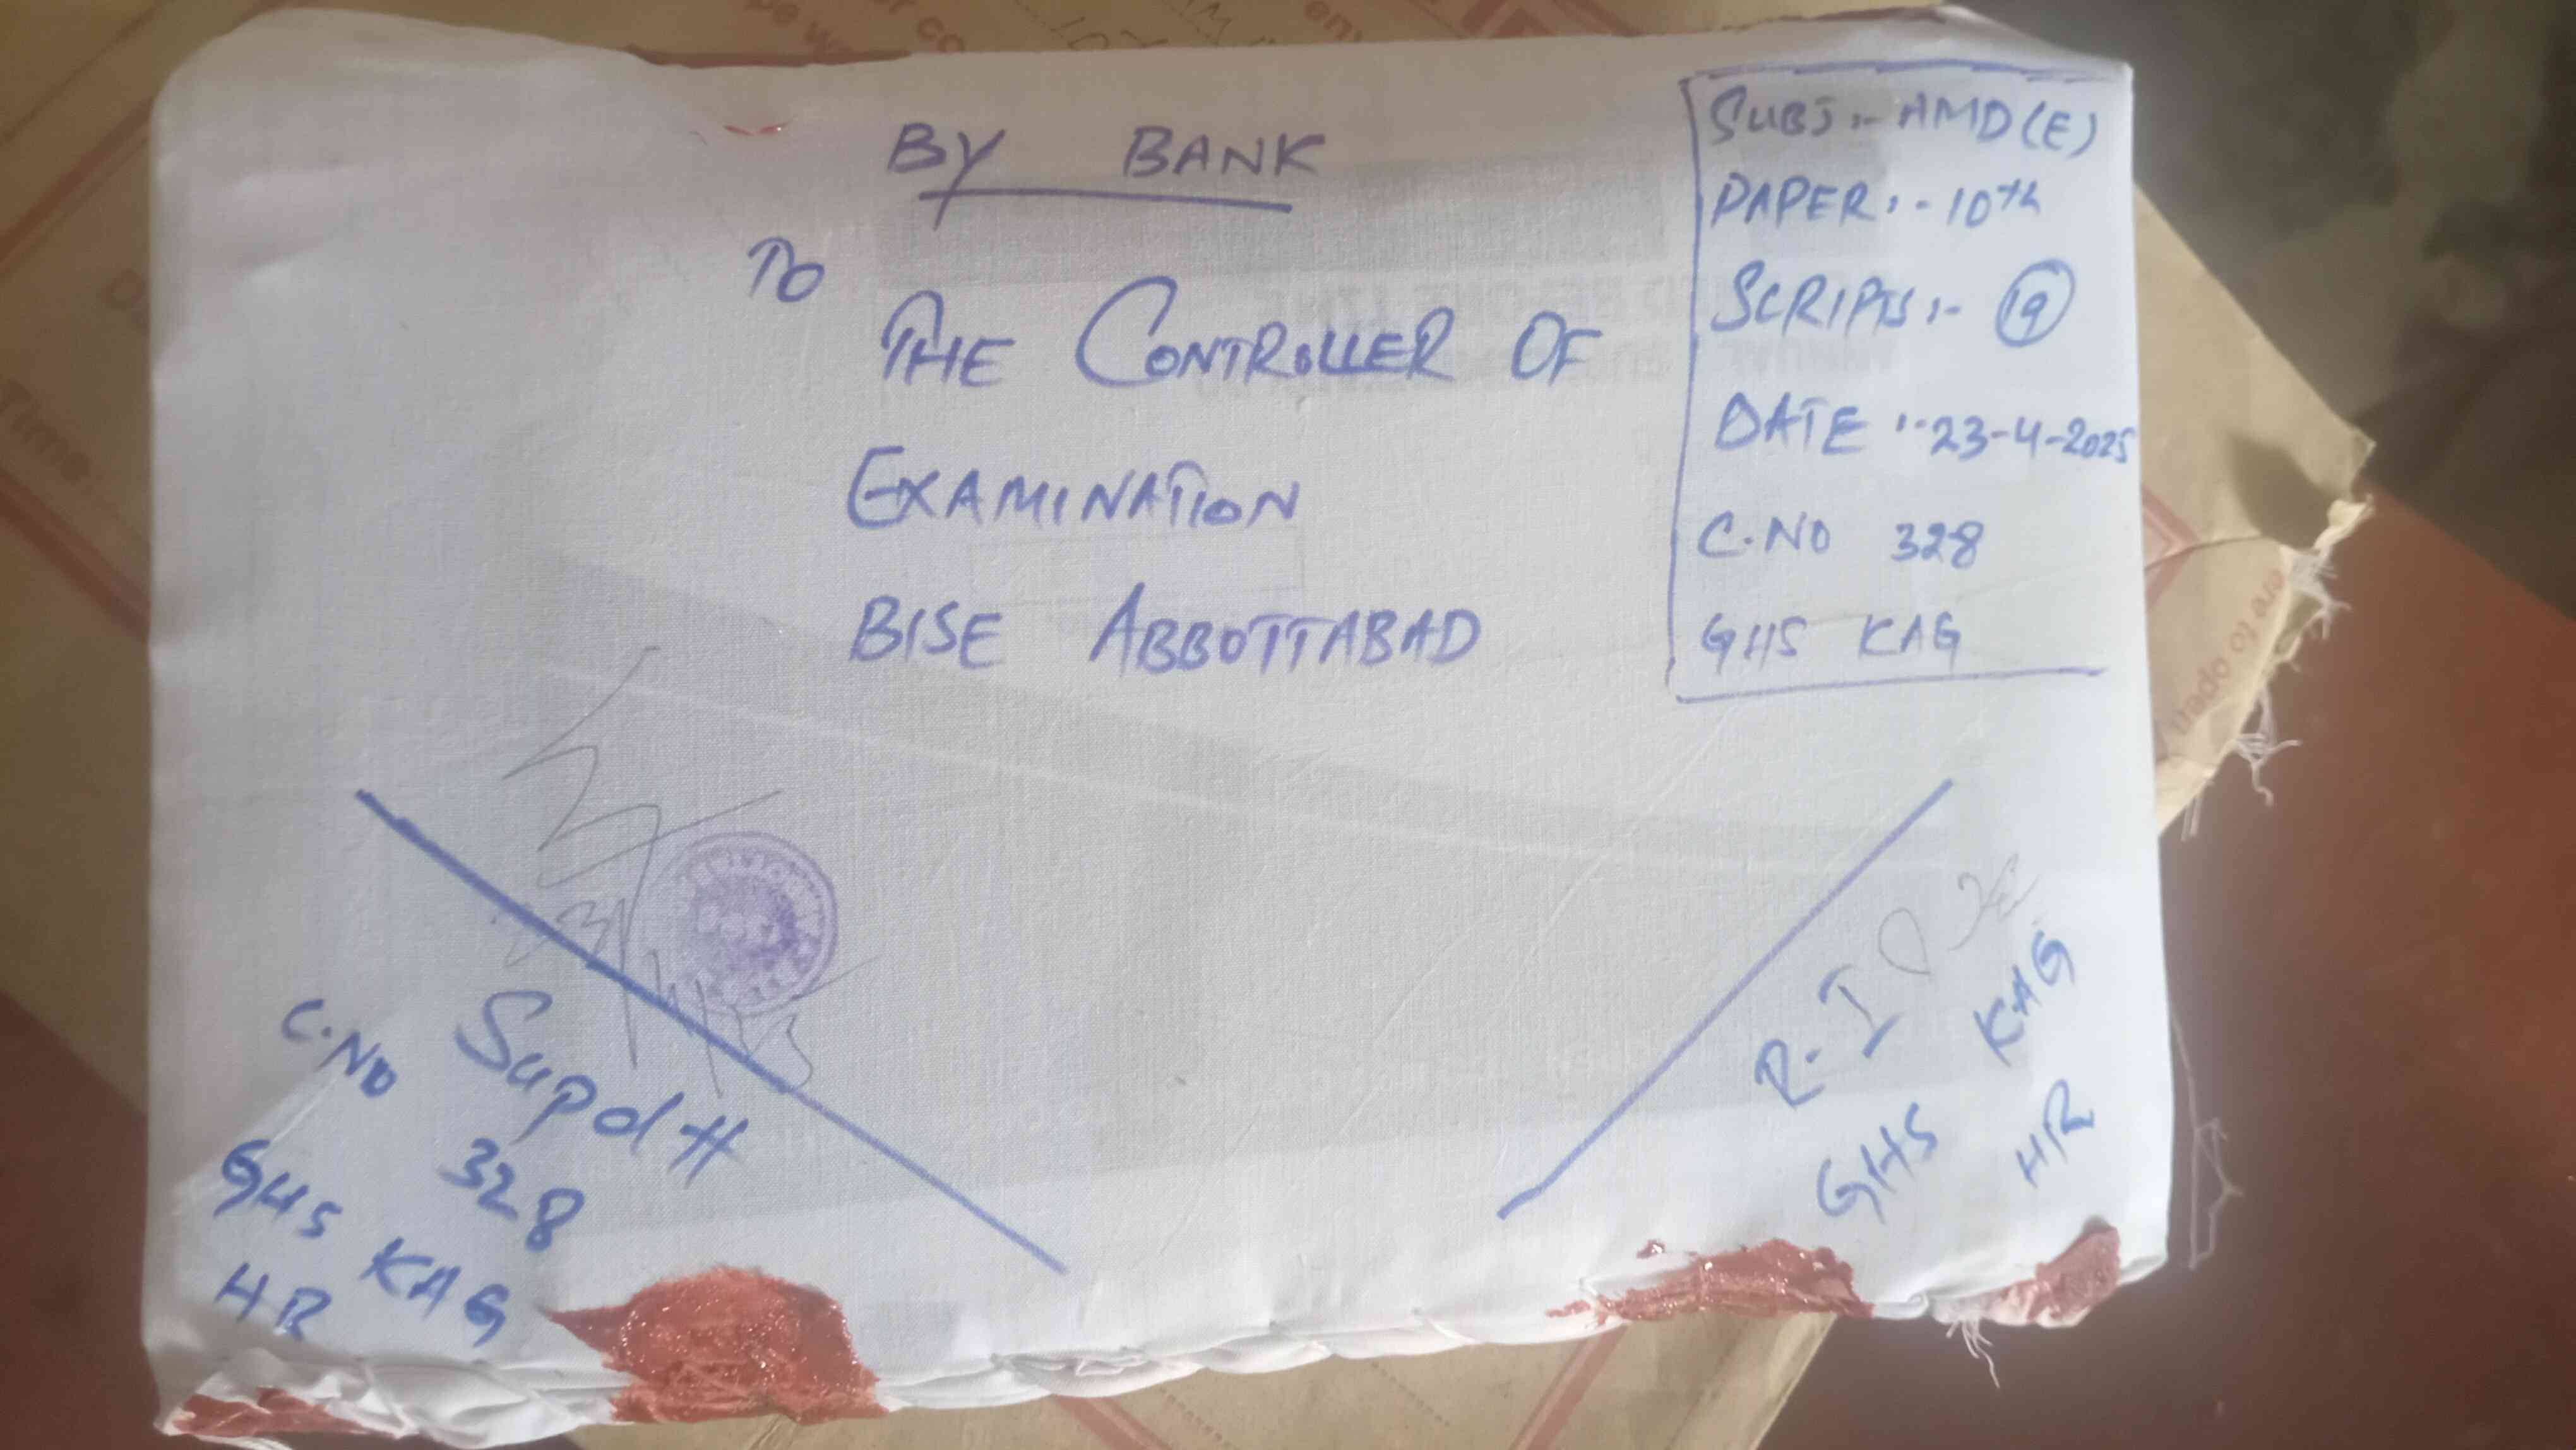 BY BANK
TO
THE CONTROLLER OF
EXAMINATION
BISE ABBOTTABAD
SUBJ:- AMD(E)
PAPER:- 10th
SCRIPTS:- 19
DATE:- 23-4-2025
C.NO 328
GHS KAG
Supdtt
C.NO 328
GHS KAG
HR
R.I
GHS KAG
HR